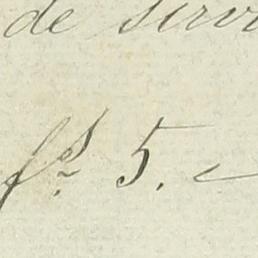 de servi
fs. 5. -